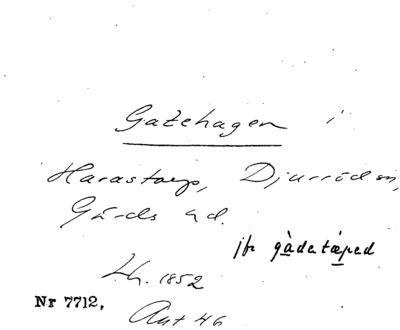 Gatehagen i
Harastorp, Djurröds sn,
Gärds hd.
jfr gàdetæped
Lh. 1852
Nr 7712,
Ant 46